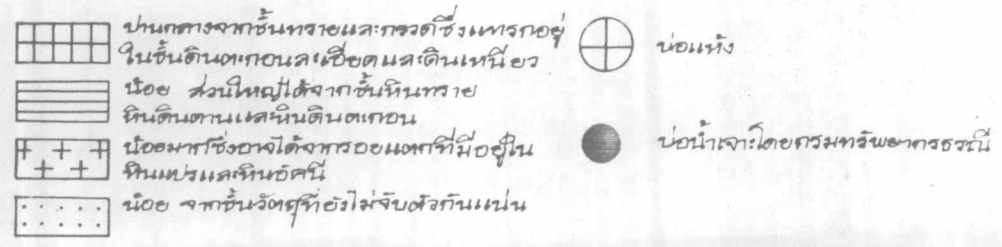 ปานกลางจากชั้นทรายและกรวดซึ่งแทรกอยู่
ในชั้นดินตะกอนละเอียดและดินเหนียว
น้อย ส่วนใหญ่ได้จากชั้นหินทราย
หินดินดานและหินดินตะกอน
น้อยมากซึ่งอาจได้จากรอยแตกที่มีอยู่ใน
หินแปรและหินอัคนี
น้อย จากชั้นวัตถุที่ยังไม่จับตัวกันแน่น
บ่อแห้ง
บ่อน้ำเจาะโดยกรมทรัพยากรธรณี